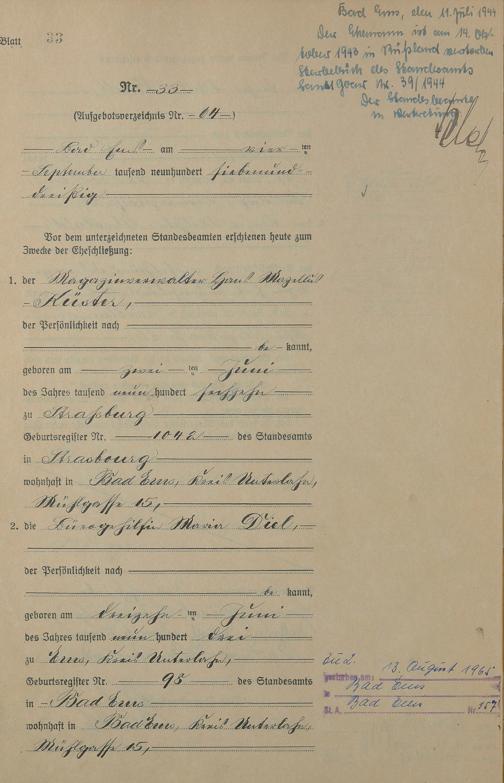 Blatt 33
Bad Ems, den 11. Juli 1944
Der Ehemann ist am 14. Ok-
tober 1943 in Rußland verstorben
Sterbebuch des Standesamts
Sankt Goar Nr. 39/1944
Der Standesbeamte
in Vertretung
Nr. 33
(Aufgebotsverzeichnis Nr. 04)
Bad Ems am vier ten
September tausend neunhundert siebenund-
dreißig
Vor dem unterzeichneten Standesbeamten erschienen heute zum
Zwecke der Eheschließung:
1. der Magazinverwalter Hans Marzellus
Küster,
der Persönlichkeit nach
be kannt,
geboren am zwei ten Juni
des Jahres tausend neun hundert sechzehn
zu Straßburg
Geburtsregister Nr. 1042 des Standesamts
in Strasbourg
wohnhaft in Bad Ems, Kreis Unterlahn,
Mühlgasse 15,
2. die Bürogehilfin Maria Diel,
der Persönlichkeit nach
be kannt,
geboren am dreizehn ten Juni
des Jahres tausend neun hundert drei
zu Ems, Kreis Unterlahn,
Geburtsregister Nr. 95 des Standesamts
in Bad Ems
wohnhaft in Bad Ems, Kreis Unterlahn,
Mühlgasse 15,
zu 2.
gestorben am: 13. August 1965
in Bad Ems
St. A. Bad Ems Nr. 157